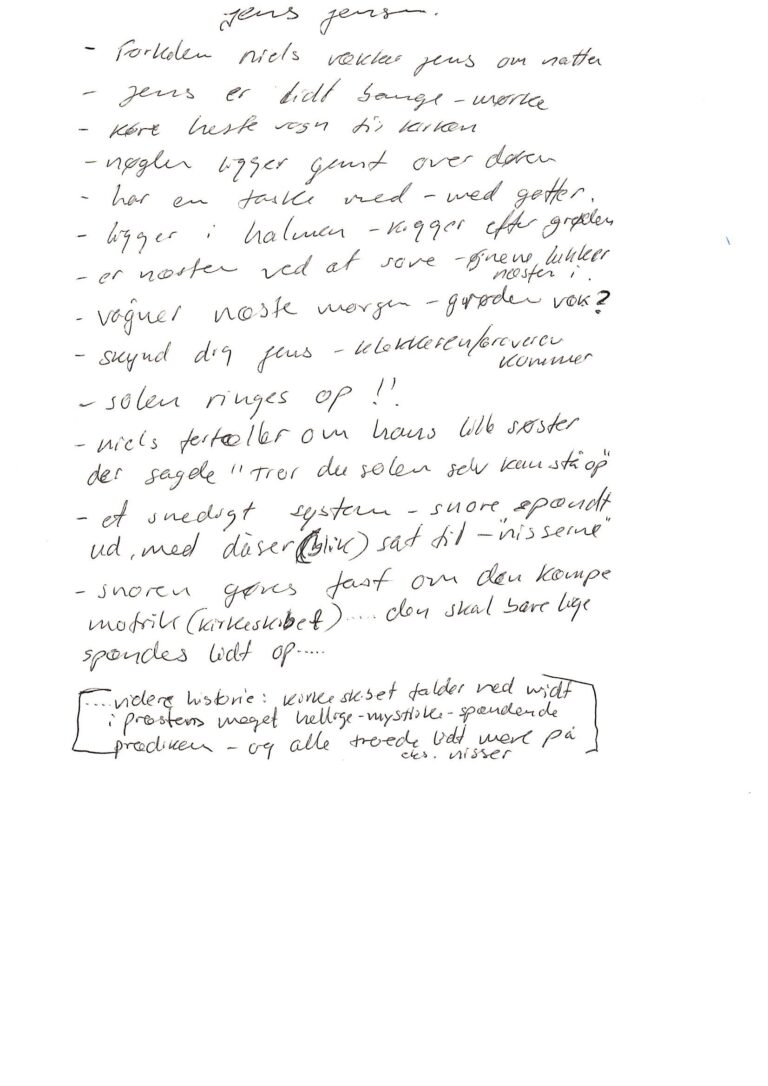 Jens Jensen.
- Forkølen niels vækker jens om natten
- Jens er lidt bange - mørke
- køre heste vogn til kirken
- nøglen ligger gemt over døren
- har en taske med - med gotter.
- ligger i halmen - kigger efter grøden
- er næsten ved at sove - øjnene lukker
næsten i.
- vågner næste morgen - grøden væk?
- skynd dig jens - klokkeren/graveren
kommer
- solen ringes op !!
- niels fortæller om hans lille søster
der sagde "Tror du solen selv kan stå op"
- et snedigt system - snore spændt
ud, med dåser (blik) sat til - "nisserne"
- snoren gøres fast om den kæmpe
møtrik (kirkeskibet) ..... den skal bare lige
spændes lidt op.....
....videre historie: kirkeskibet falder ned midt
i præstens meget hellige - mystiske - spændende
prædiken - og alle troede lidt mere på
nisser